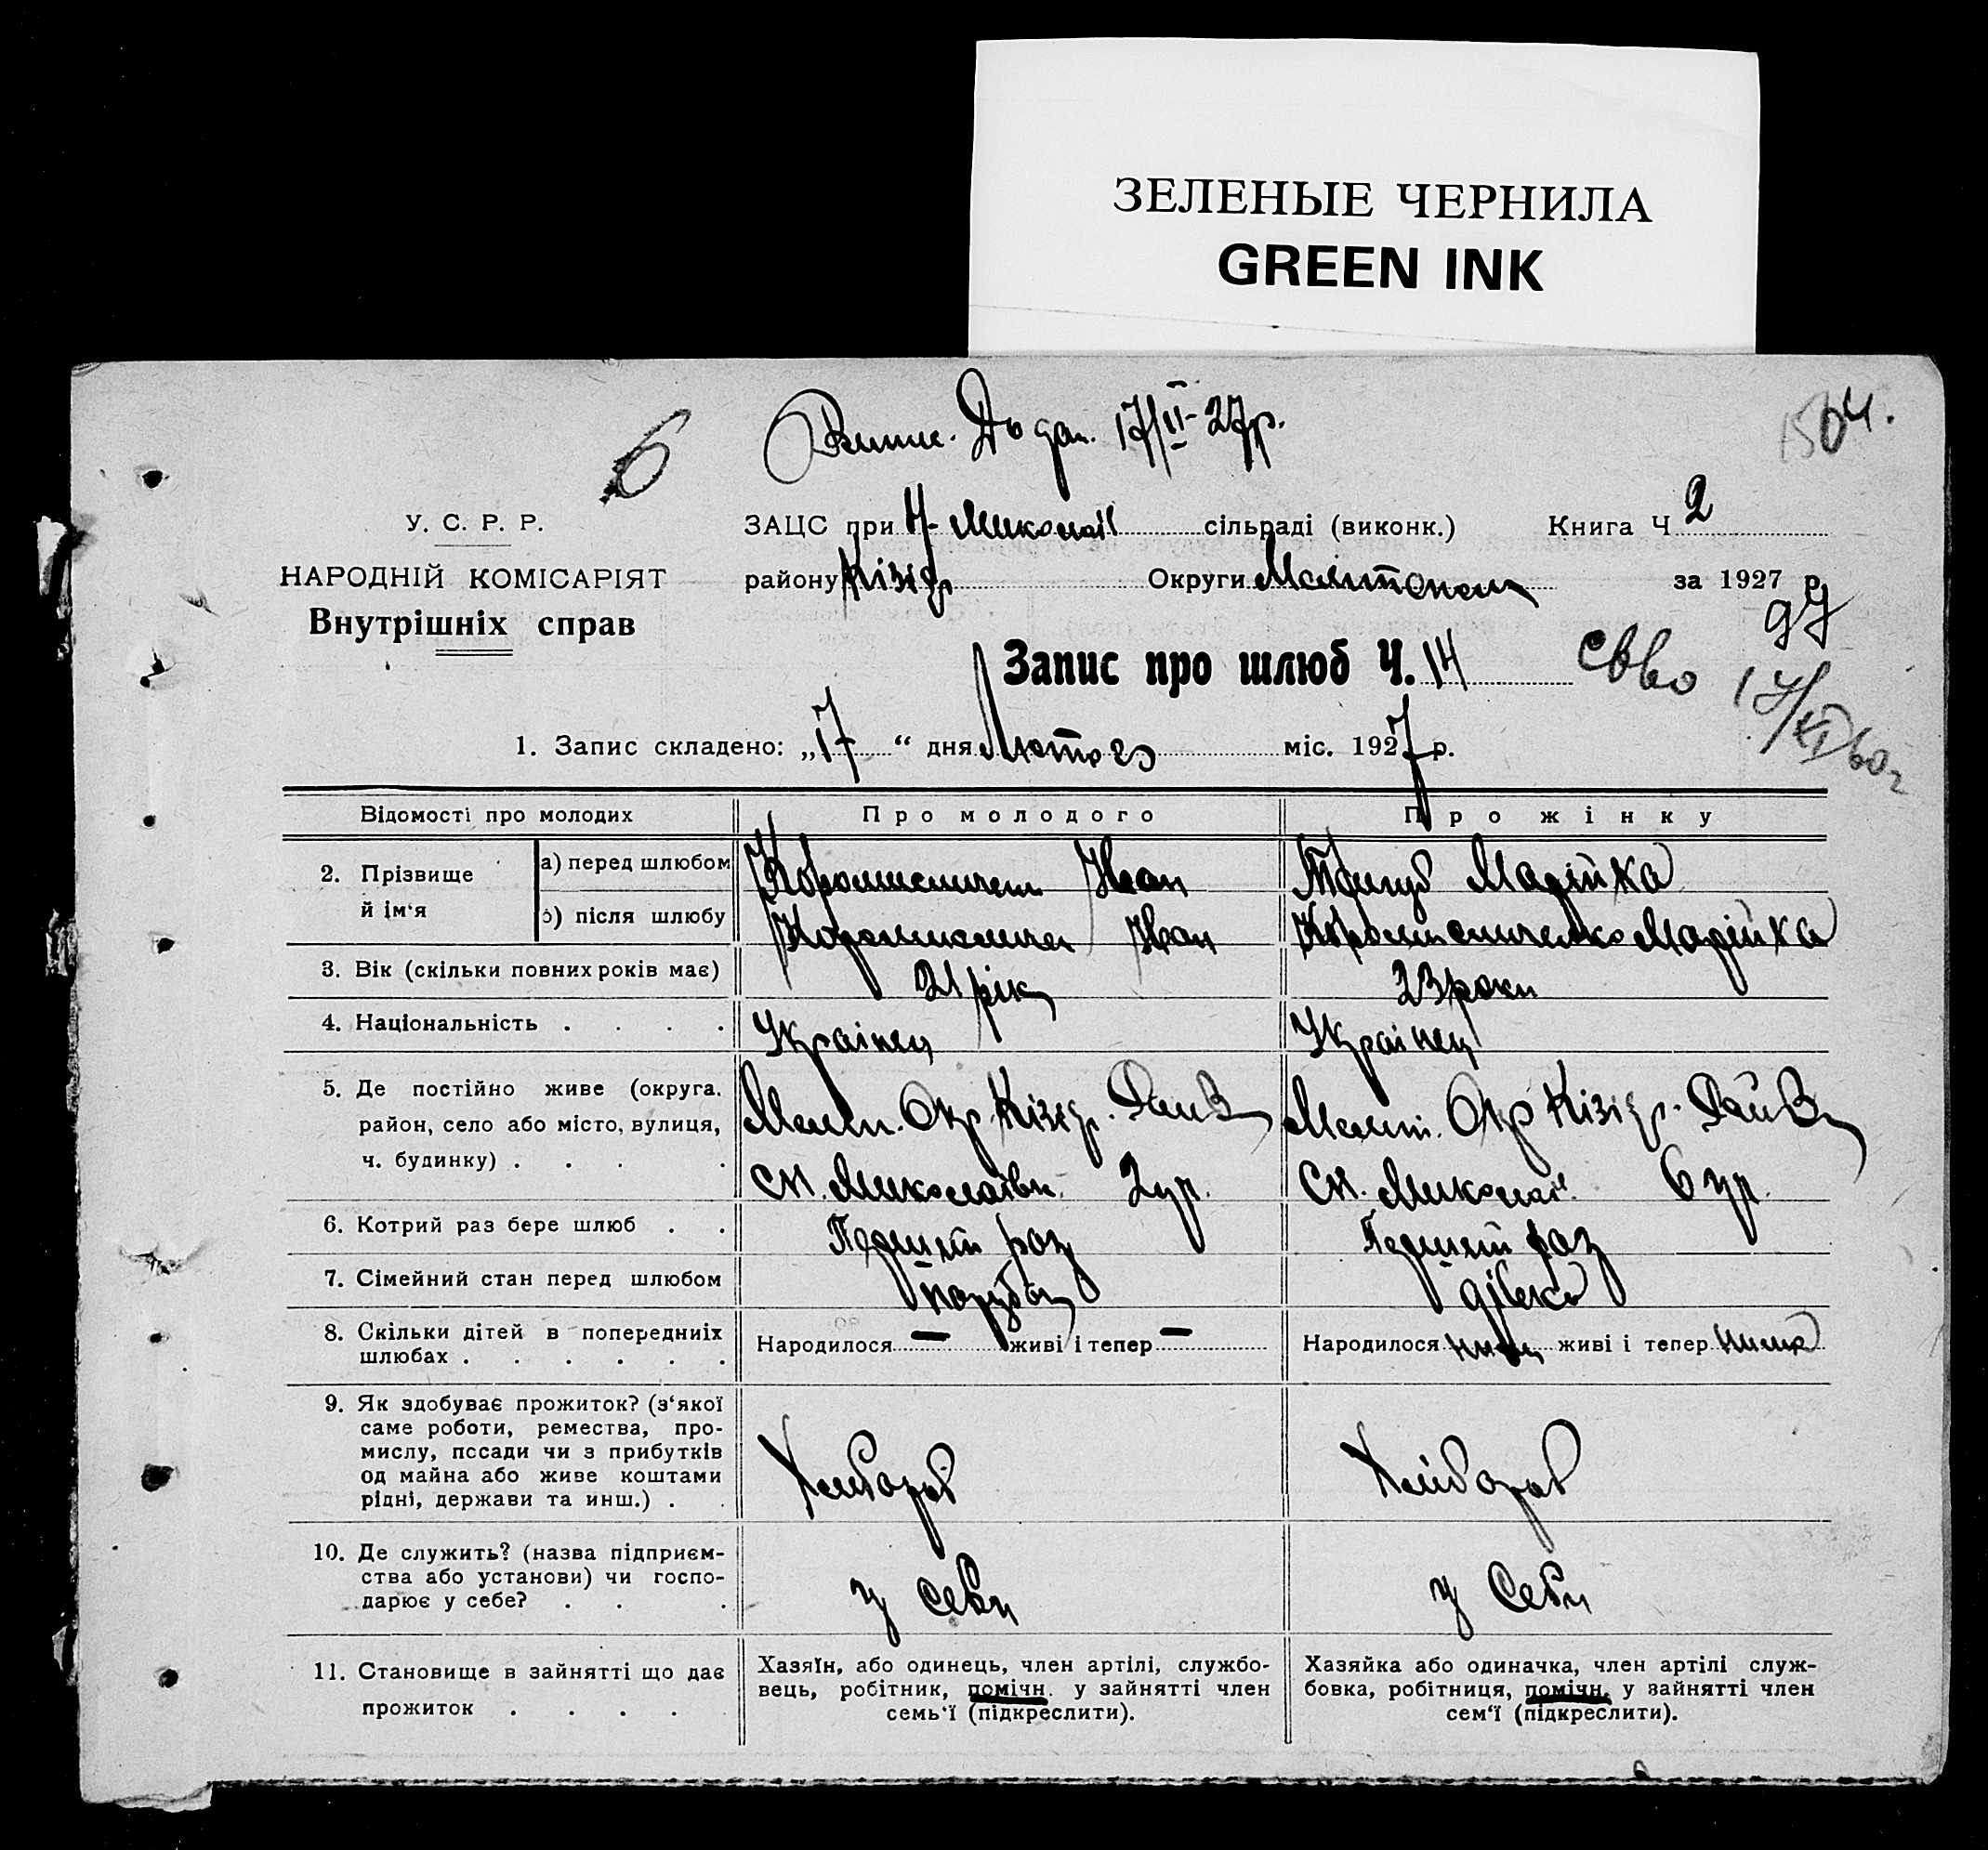 ЗЕЛЕНЫЕ ЧЕРНИЛА
GREEN INK
6
17/II-27р.
У. С. Р. Р.
ЗАЦС при Н-Миколаїв сільраді (виконк.) Книга Ч 2
НАРОДНІЙ КОМІСАРІЯТ
району Кізяр Округи Мелітопол за 1927 р.
Внутрішніх справ
99
Запис про шлюб Ч. 14
1. Запис складено: „17“ дня Лютого міс. 1927 р.
Відомості про молодих Про молодого Про жінку
2. Прізвище й ім‘я
а) перед шлюбом Иван Марійка
б) після шлюбу Иван Марійка
3. Вік (скільки повних років має) 21 рік 23 роки
4. Національність . . . . Українец Українец
5. Де постійно живе (округа,
район, село або місто, вулиця,
ч. будинку) . . . .
Мелит. Окр Кізяр. Мелит. Окр Кізяр.
6. Котрий раз бере шлюб . . Перший раз Перший раз
7. Сімейний стан перед шлюбом парубок дівка
8. Скільки дітей в попередниіх
шлюбах . . . . . .
Народилося — живі і тепер — Народилося живі і тепер нима
9. Як здобуває прожиток? (з‘якої
саме роботи, ремества, про-
мислу, посади чи з прибутків
од майна або живе коштами
рідні, держави та инш.) . .
Хлібороб Хлібороб
10. Де служить? (назва підприєм-
ства або установи) чи госпо-
дарює у себе? . . .
у себи у Себи
11. Становище в зайнятті що дає
прожиток . . . .
Хазяїн, або одинець, член артілі, службо-
вець, робітник, помічн. у зайнятті член
семь‘ї (підкреслити).
Хазяйка або одиначка, член артілі служ-
бовка, робітниця, помічн. у зайнятті член
сем‘ї (підкреслити).